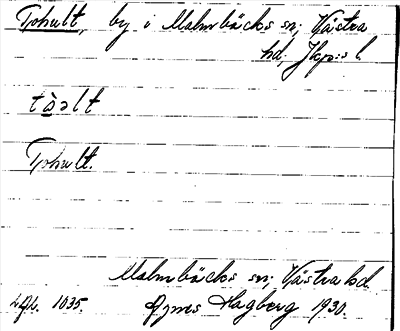 Tohult, by i Malmbäcks sn; Västra
hd; Jkp:s l.
tòₔlt
Tohult.
Malmbäcks sn; Västra hd
1035. Hagberg 1930.